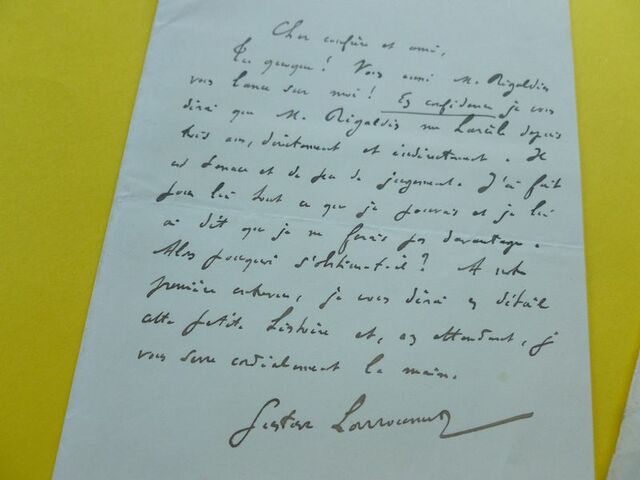 Cher confrère et ami,
Tu quoque ! Vous aussi M. Rigaldin
vous lance sur moi ! En confidence, je vous
dirai que M. Rigaldin me harcèle depuis
trois ans, directement et indirectement. Il
est tenace et de peu de jugement. J'ai fait
pour lui tout ce que je pouvais et je lui
ai dit que je ne ferais pas davantage.
Alors pourquoi s'obstine-t-il ? A notre
première entrevue, je vous dirai en détail
cette petite histoire et, en attendant, je
vous serre cordialement la main.
Gustave Larroumet